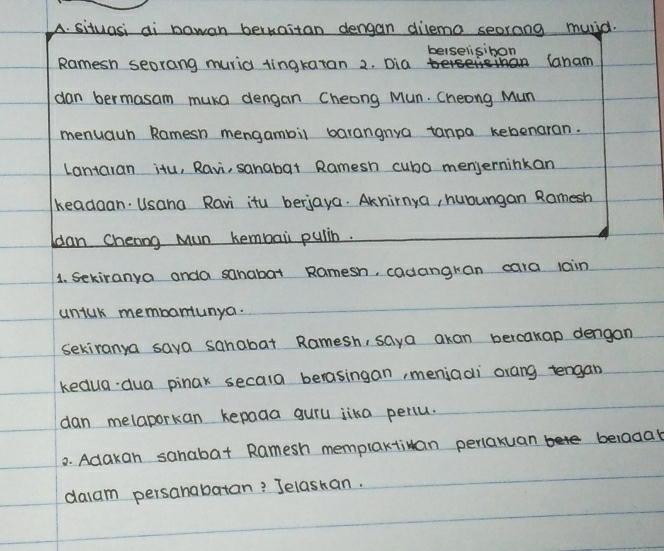 A. situasi di bawah berkaitan dengan dilema seorang murid.
Ramesh seorang murid tingkatan 2. Dia berselisihan berselisihan faham
dan bermasam muka dengan Cheong Mun. Cheong Mun
menuduh Ramesh mengambil barangnya tanpa kebenaran.
Lantaran itu, Ravi, sahabat Ramesh cuba menjernihkan
keadaan. Usaha Ravi itu berjaya. Akhirnya, hubungan Ramesh
dan Cheong Mun kembali pulih.
1. Sekiranya anda sahabat Ramesh, cadangkan cara lain
untuk membantunya.
Sekiranya saya sahabat Ramesh, saya akan bercakap dengan
kedua-dua pihak secara berasingan, menjadi orang tengah
dan melaporkan kepada guru jika perlu.
2. Adakah sahabat Ramesh mempraktikkan perlakuan bete beradab
dalam persahabatan? Jelaskan.